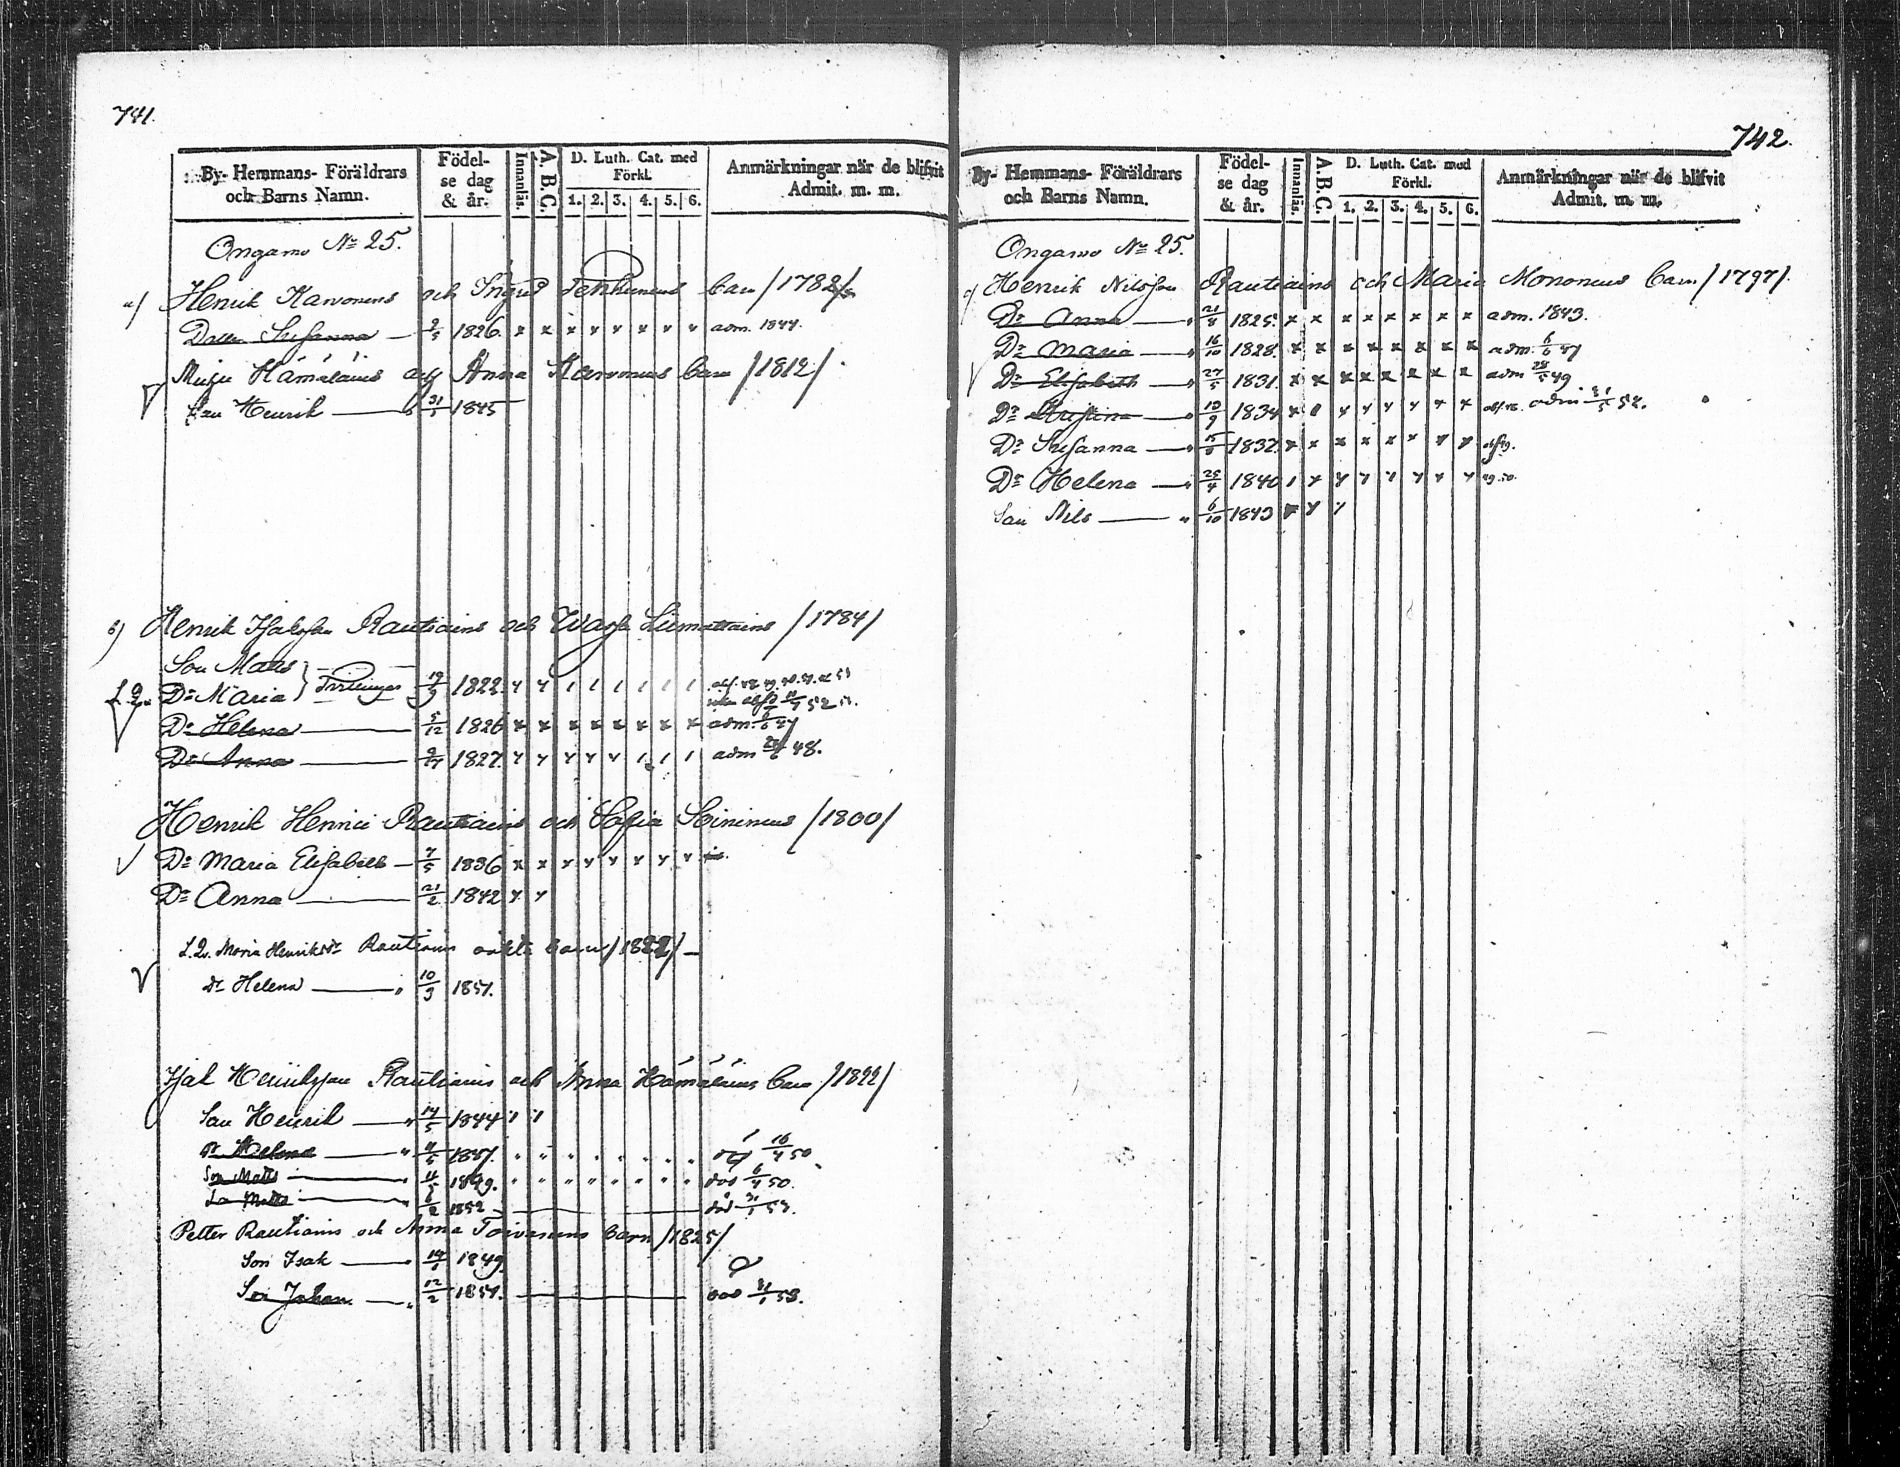 741.
By- Hemmans- Föräldrars och Barns Namn. Födel- se dag & år. Innanläs. A.B.C. D. Luth. Cat. med Förkl. 1. 2. 3. 4. 5. 6. Anmärkningar när de blifvit Admit. m. m.
Ongamo No 25.
a) Henrik Karvonens och Ingrid Tenhunens barn /1782/
Dottr Susanna 2/5 1826. x x x x x x x x adm. 1844.
Hämäläins och Anna Karvonens barn /1812/.
Son Henrik 31/1 1845
b) Henrik Isaksson Rautiains och Liimattains /1784/
Son Mats
Dr Maria Tvillingar 19/9 1822.
Dr Helena 5/12 1826 x x x x x x x x adm. 6/6 47
Dr Anna 1827. adm 48.
Henrik Henrici Rautiains och Sofia Hirvinens /1800/
Dr Maria Elisabeth 7/5 1836
Dr Anna 21/2 1842
L.Q. Maria Henriksdr Rautiains oäkta barn /1822/
dr Helena 10/9 1851.
Isak Henriksson Rautiains och Anna Hämäläins barn /1822/
Son Henrik 14/5 1844
Dr Helena 1847. död 16/4 50
Son Mats 1849. död 6/4 50.
Son Matts 1852 död 53.
Petter Rautiains och Anna Toivanens barn /1825/
Son Isak 1849
Son Johan 12/2 1851. död 53.
742.
By- Hemmans- Föräldrars och Barns Namn. Födel- se dag & år. Innanläs. A.B.C. D. Luth. Cat. med Förkl. 1. 2. 3. 4. 5. 6. Anmärkningar när de blifvit Admit. m. m.
Ongamo No 25.
c) Henrik Nilsson Rautiains och Maria Mononens barn /1797/.
Dr Anna 21/8 1825. x x x x x x x x adm. 1843.
Dr Maria 16/10 1828. x x x x x x x x adm. 6/6 47
Dr Elisabeth 27/5 1831. x x x x x x x x adm 49
Dr Kristina 1834 adm 52.
Dr Susanna 1837
Dr Helena 25/4 1840
Son Nils 6/10 1843